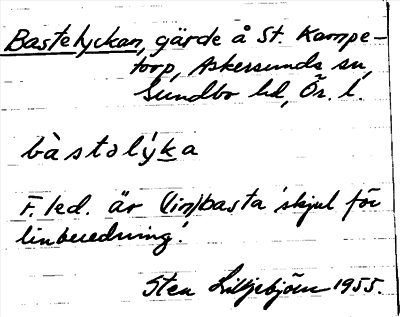 Bastelyckan, gärde å St. Kampe-
torp, Askersunds sn,
Sundbo hd, Ör. l.
bàstolýka
F. led. är (lin)basta 'skjul för
linberedning'.
Sten Liljebjörn 1955.